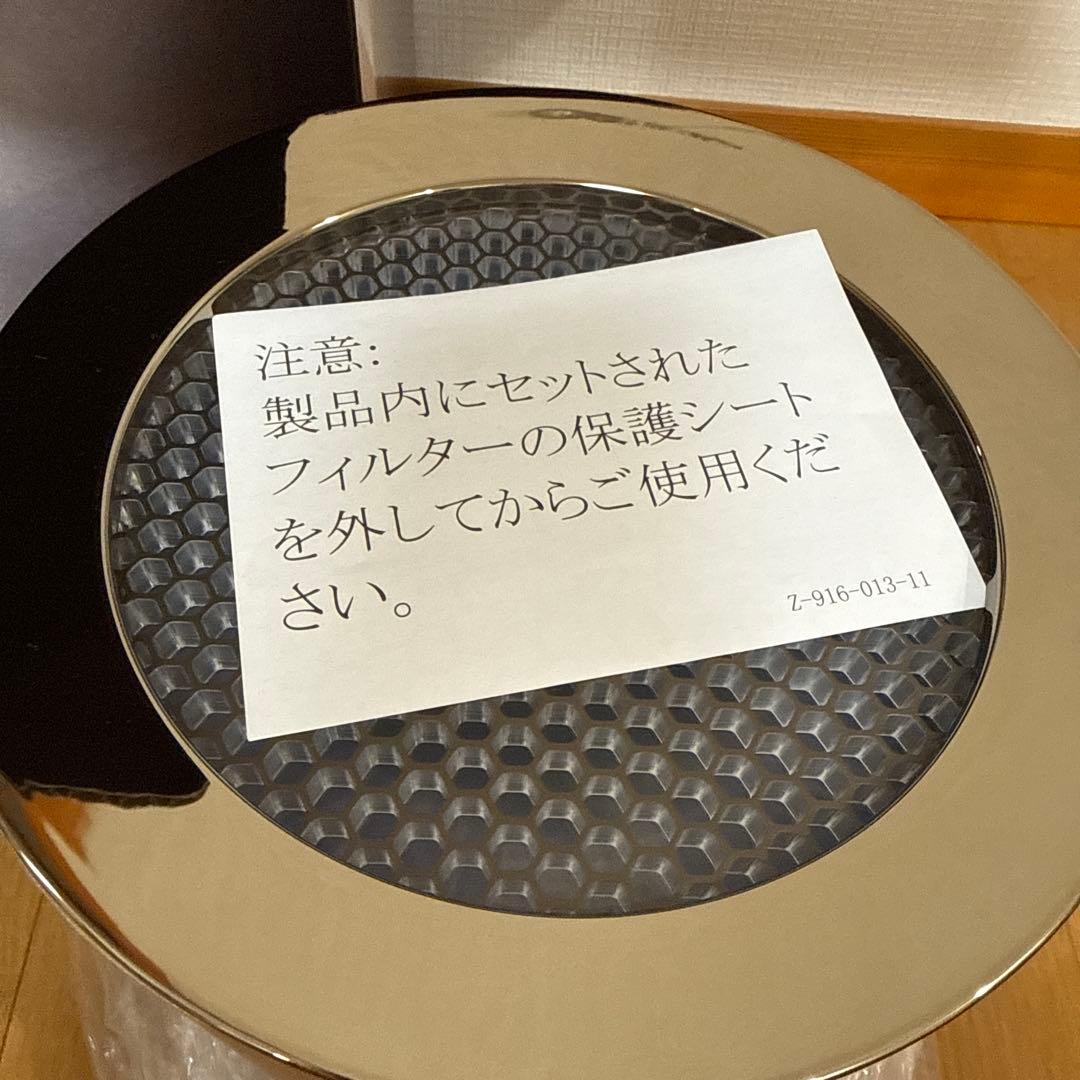 注意：
製品内にセットされた
フィルターの保護シート
を外してからご使用くだ
さい。
Z-916-013-11